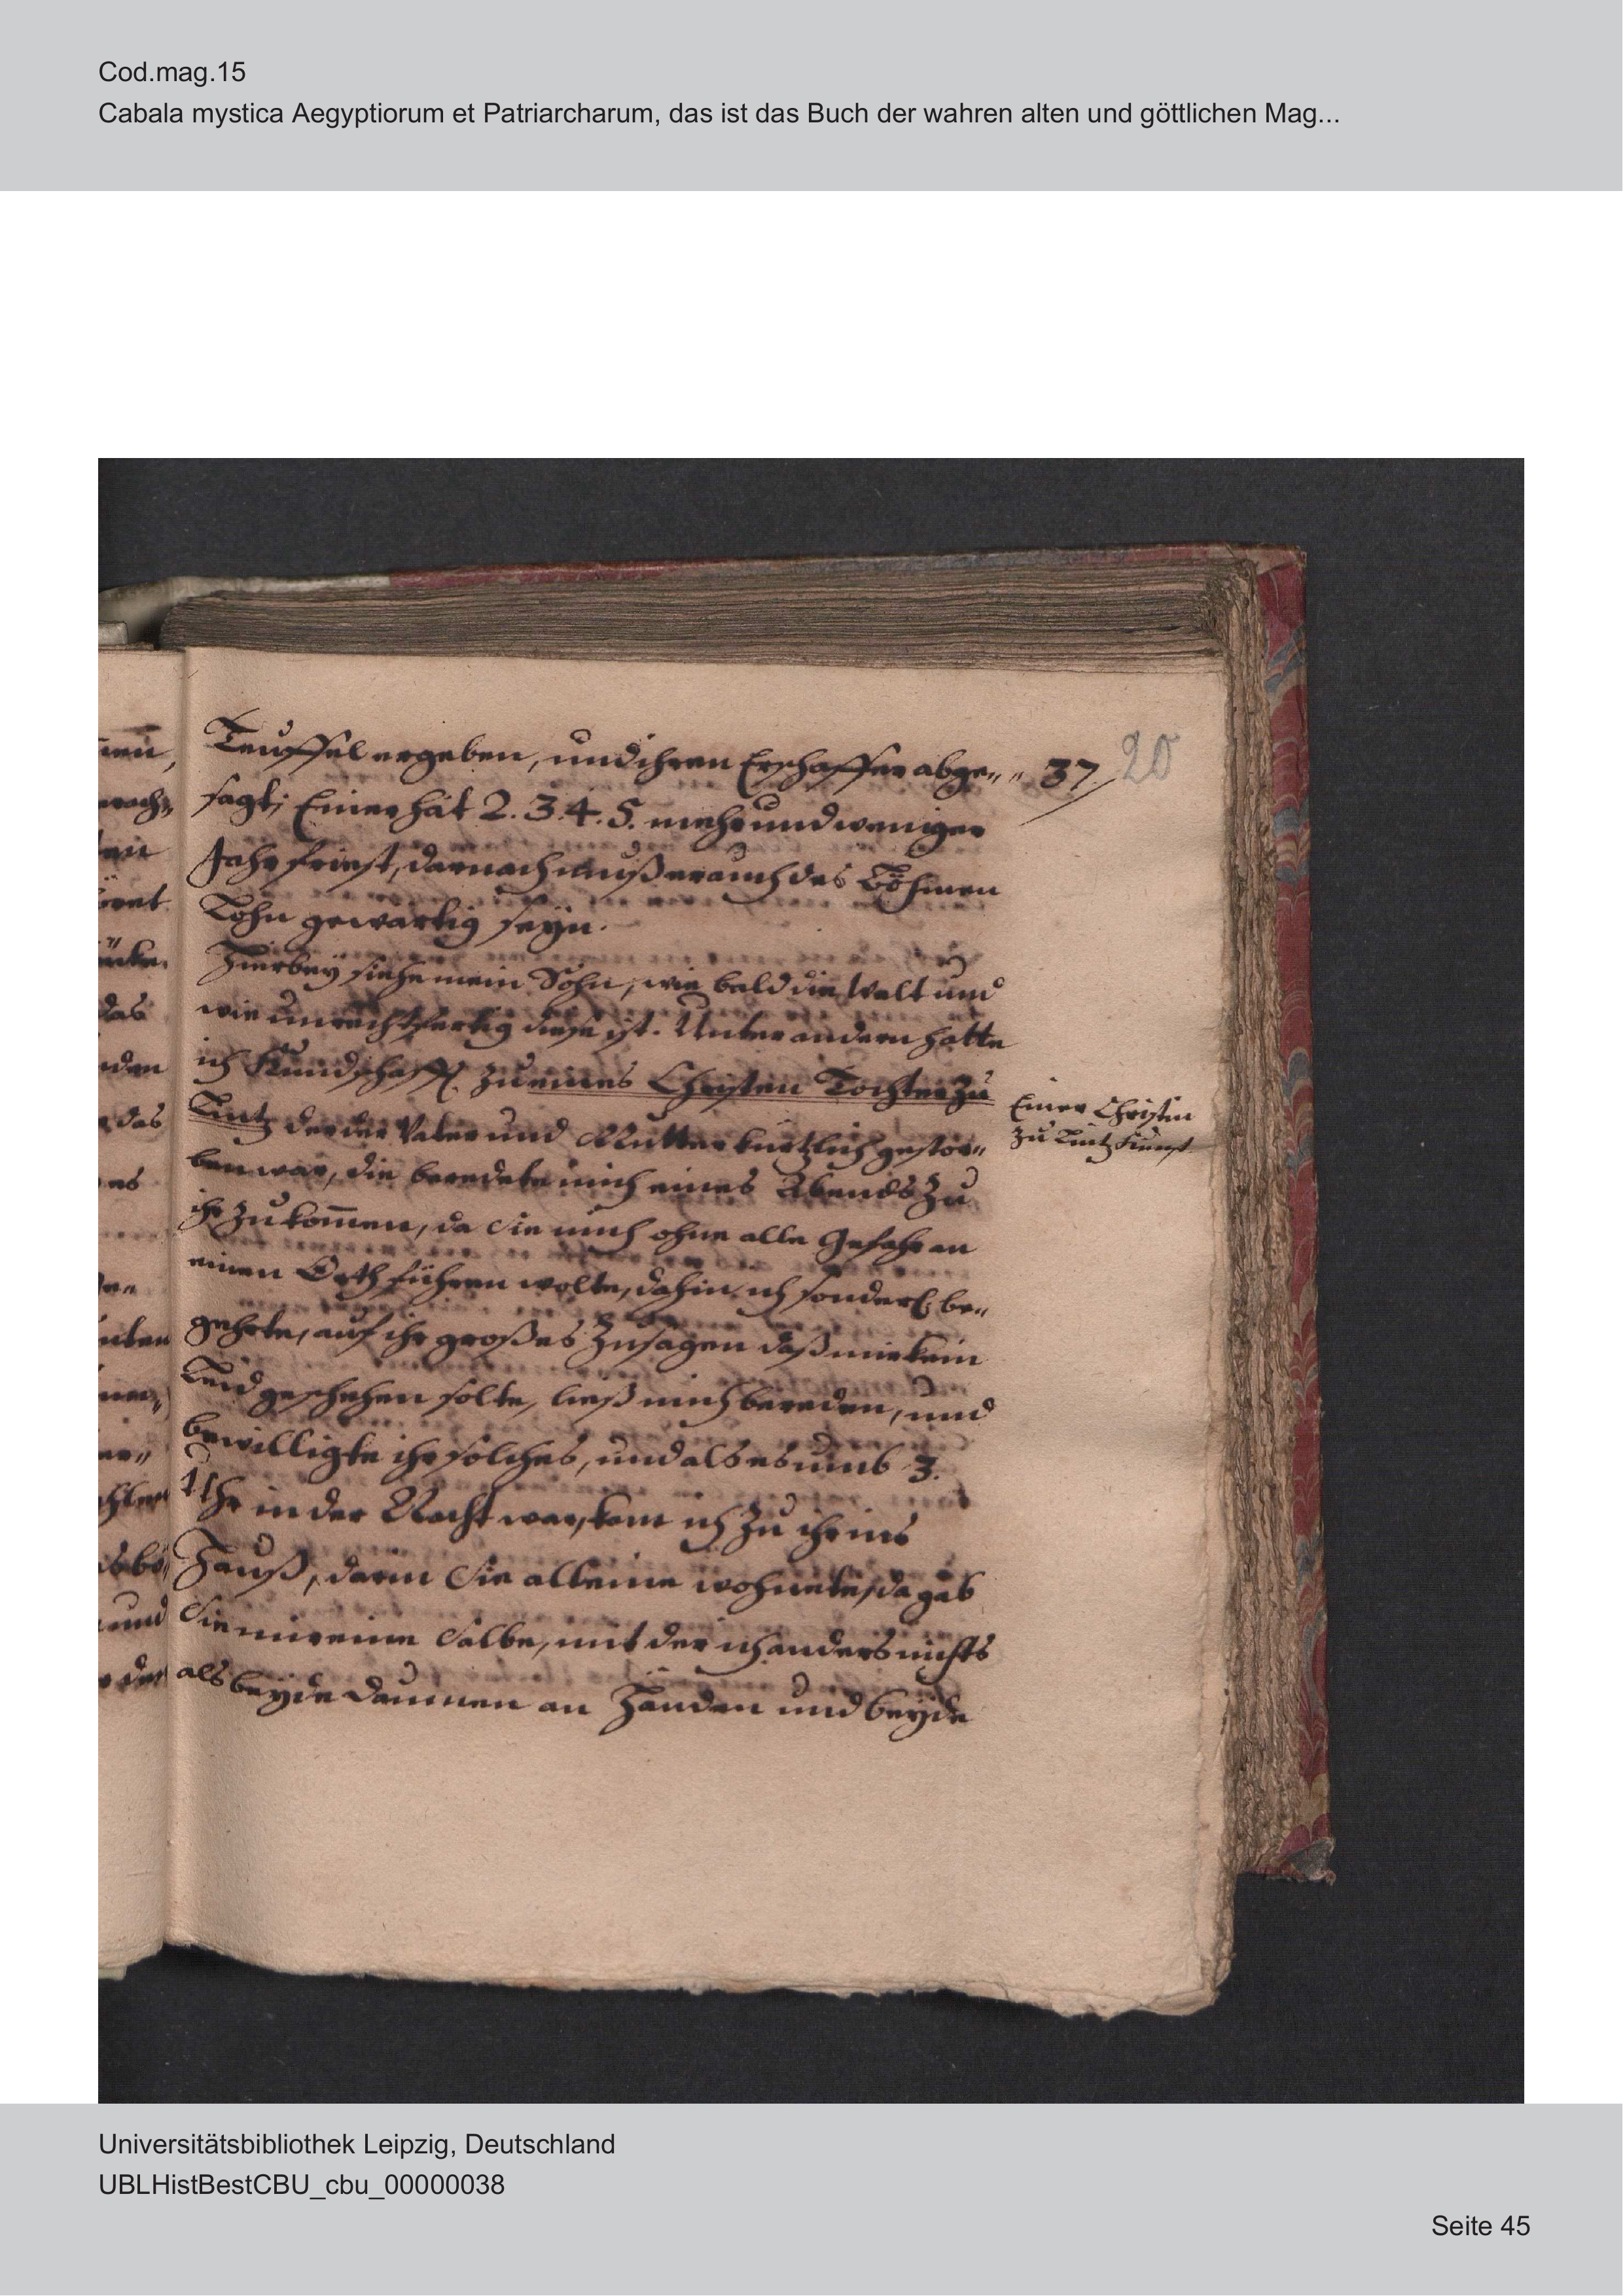 Cod.mag.15
Cabala mystica Aegyptiorum et Patriarcharum, das ist das Buch der wahren alten und göttlichen Mag...
Teuffel ergeben, und ihren Erschaffer abge„ „ 37/ 20
sagt; Einer hat 2. 3. 4. 5. mehr und weniger
Jahr friest, darnach muß er auch des Böhmen
Lohn gewärtig seÿn.
Hierbeÿ siehe mein Sohn, wie bald die Welt und
wie unrechtfertig diese ist. Unter andern hatte
ich Kundschafft zu eines Christen Tochter zu
Lintz der der Vater und Mutter kürtzlich gestor„
ben war, die beredete mich eines Abends zu
ihr zu kom̄en, da Sie mich ohne alle Gefahr an
einen Orth führen wolte, dahin ich sonderl. be„
gehrte, auf ihr großes Zusagen daß mir kein
Leid geschehen solte, ließ mich bereden, und
bewilligte ihr solches, und als es umb 3.
Uhr in der Nacht war, kam ich zu ihr ins
Hauß, darin Sie alleine wohnete, da gab
Sie mir eine Salbe, mit der ich anders nichts
als beÿde Daumen an Händen und beÿde
Einer Christin
zu Lintz Kunst
Universitätsbibliothek Leipzig, Deutschland
UBLHistBestCBU_cbu_00000038
Seite 45